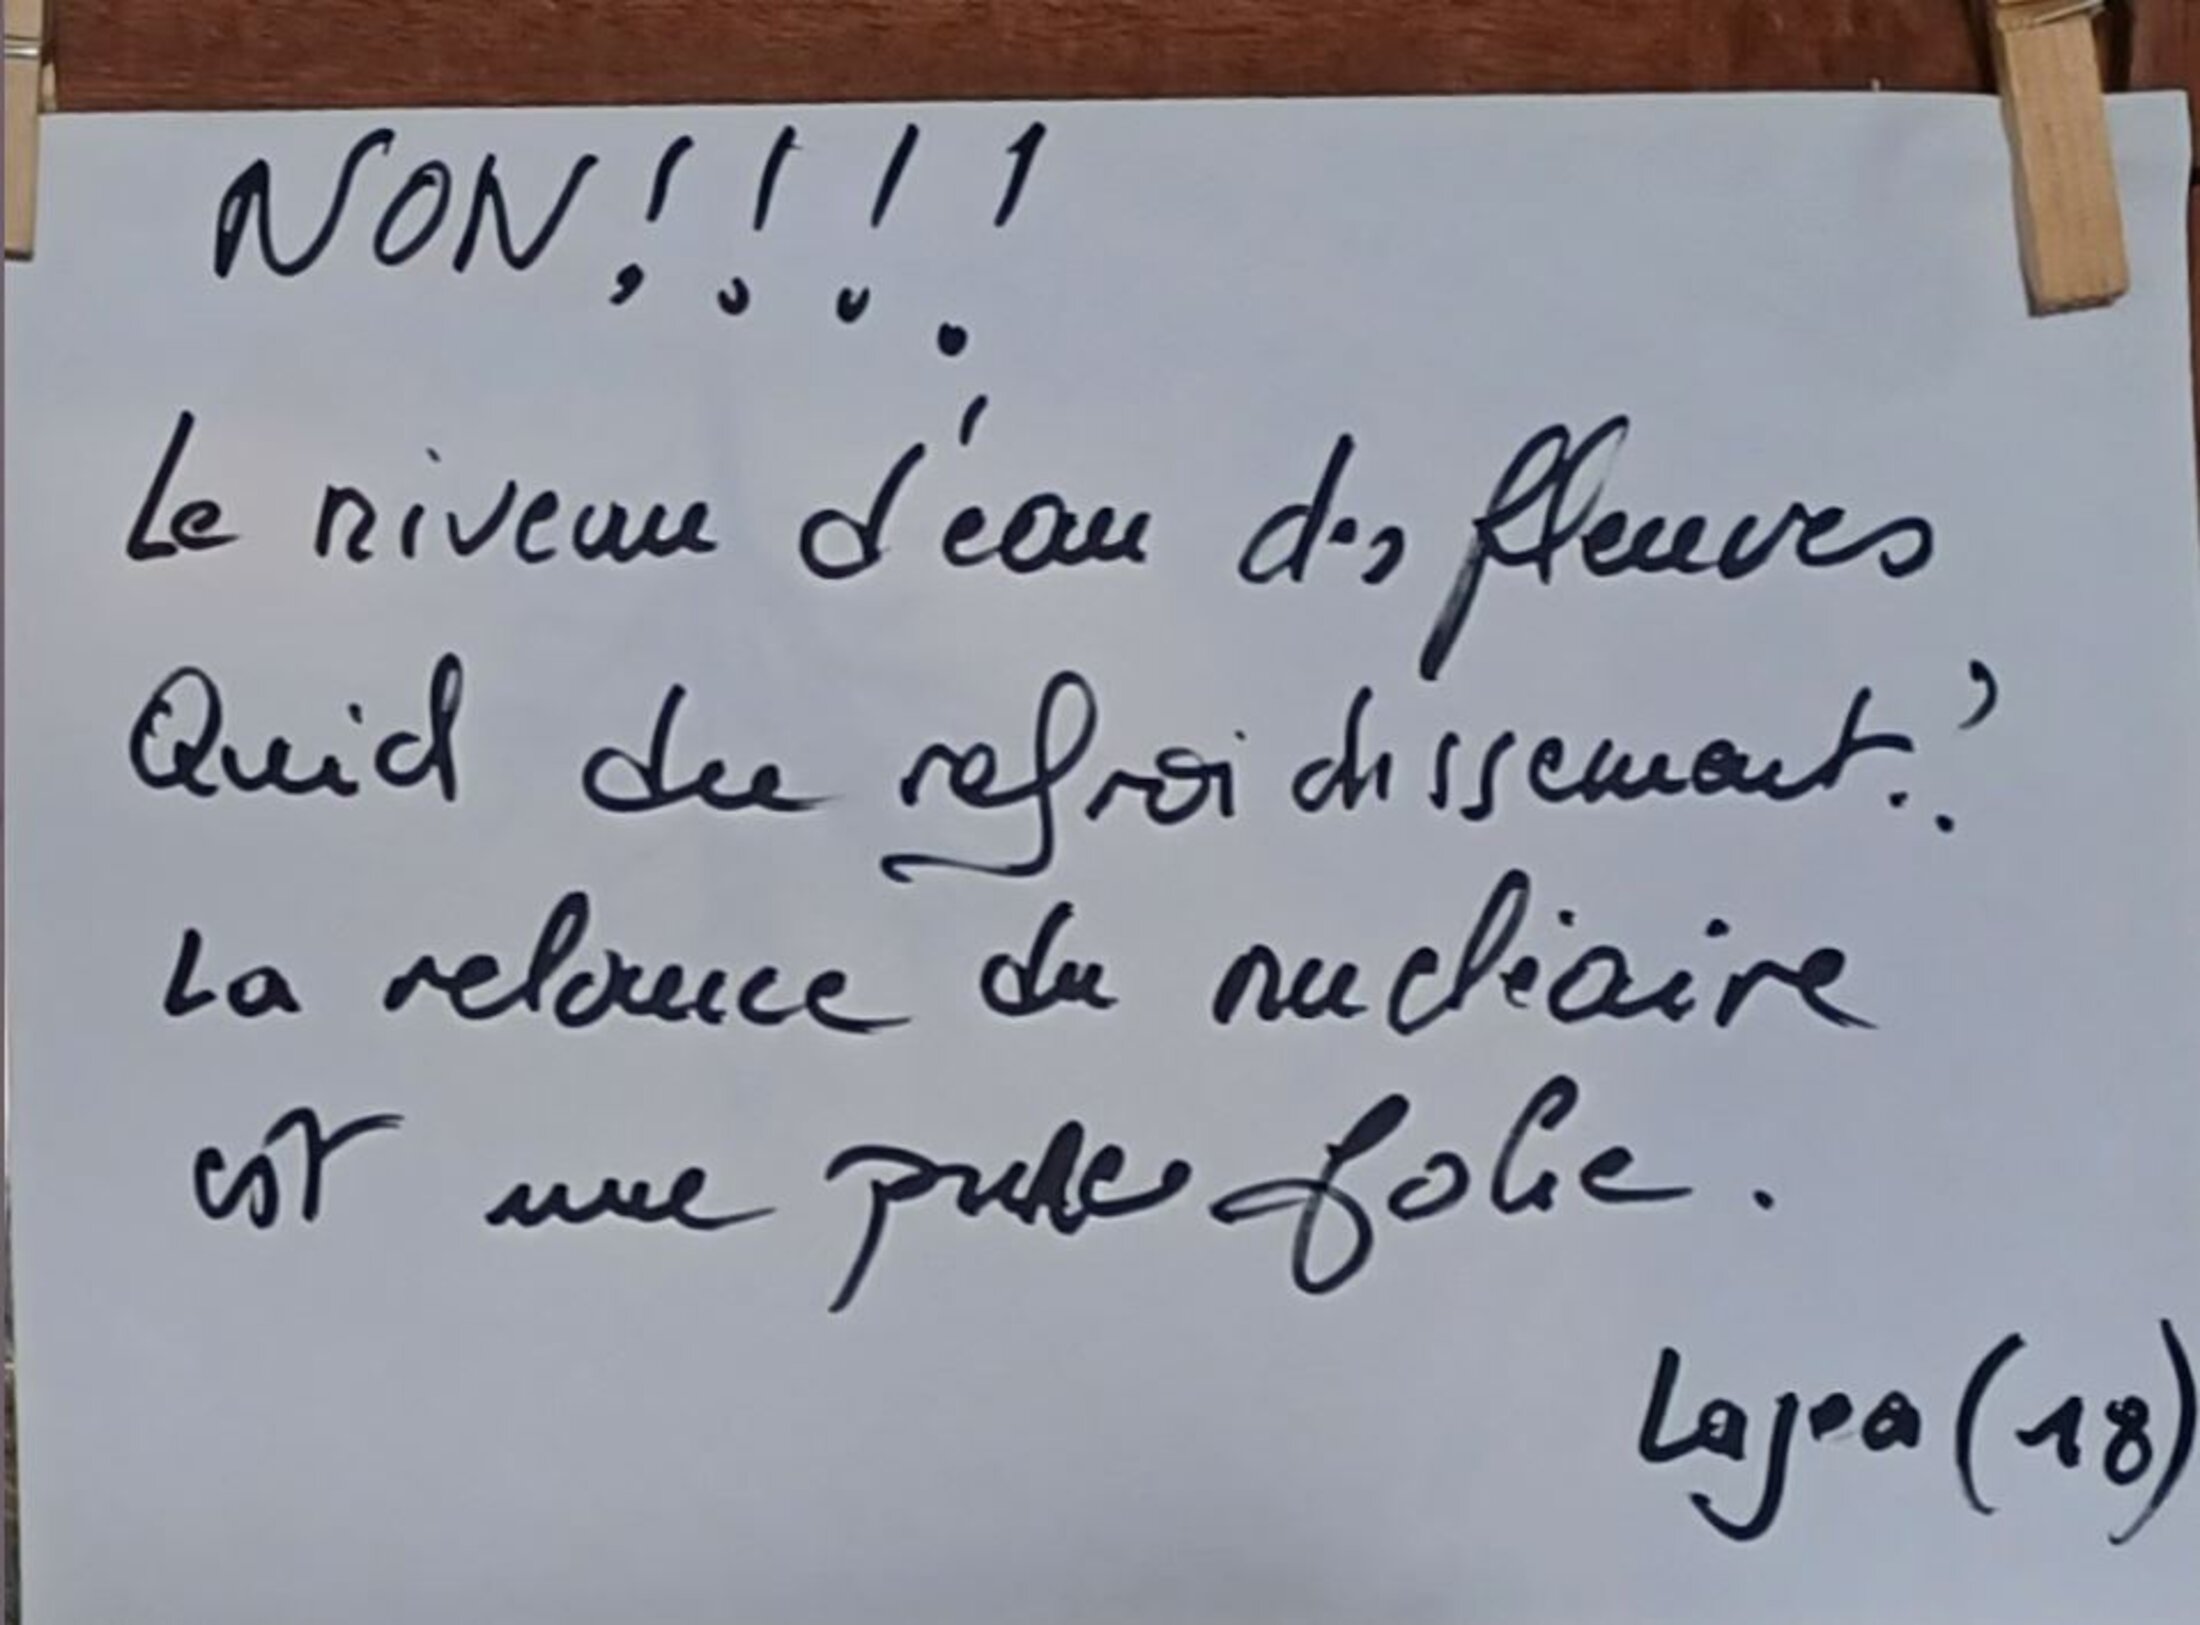 NON!!!!
Le niveau d'eau des fleuves
Quid du refroidissement.?
La relance du nucléaire
est une pure folie.
Lajea (18)